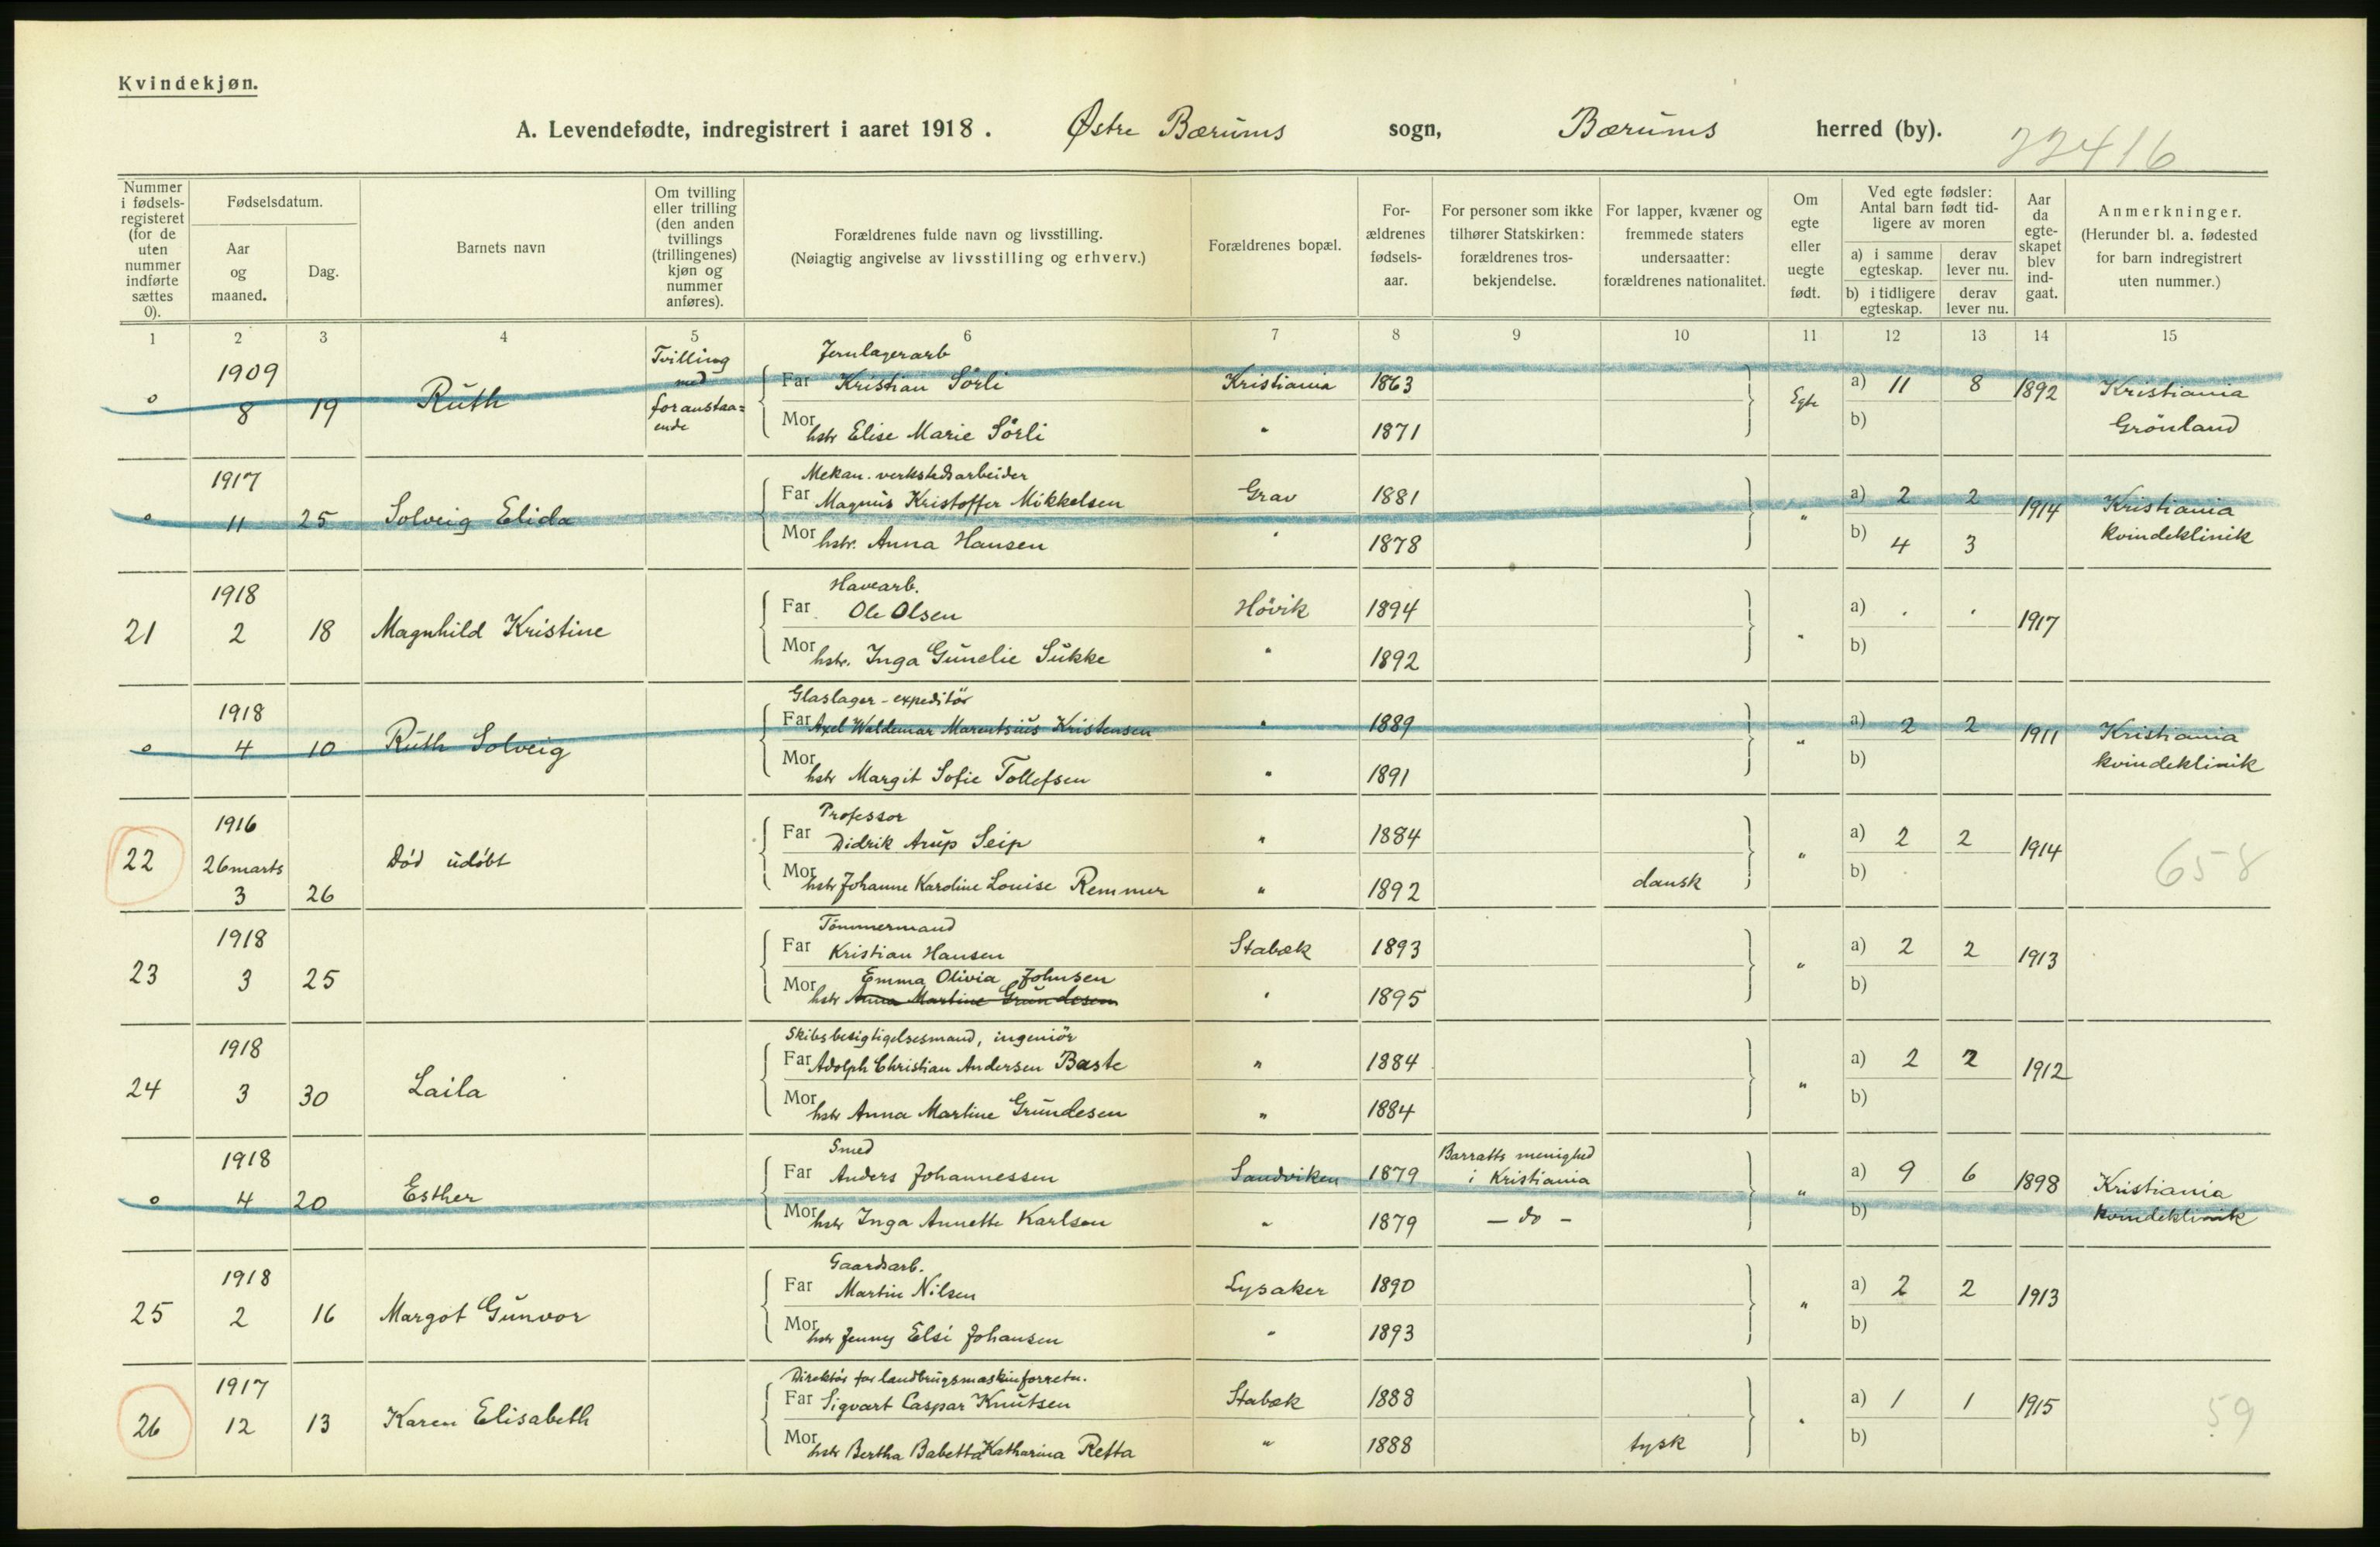 Kvindekjøn.
A. Levendefødte, indregistrert i aaret 1918. Østre Bærums sogn, Bærums herred (by). 22416
Nummer i fødsels-registeret (for de uten nummer indførte sættes 0).
Fødselsdatum.
Aar og maaned.
Dag.
Barnets navn
Om tvilling eller trilling (den anden tvillings (trillingenes) kjøn og nummer anføres).
Forældrenes fulde navn og livsstilling.
(Nøiagtig angivelse av livsstilling og erhverv.)
Forældrenes bopæl.
For-ældrenes fødsels-aar.
For personer som ikke tilhører Statskirken: forældrenes tros-bekjendelse.
For lapper, kvæner og fremmede staters undersaatter: forældrenes nationalitet.
Om egte eller uegte født.
Ved egte fødsler: Antal barn født tid-ligere av moren
a) i samme egteskap. derav lever nu.
b) i tidligere egteskap. derav lever nu.
Aar da egte-skapet blev ind-gaat.
Anmerkninger.
(Herunder bl. a. fødested for barn indregistrert uten nummer.)
1 2 3 4 5 6 7 8 9 10 11 12 13 14 15
1909 Tvilling med foranstaa=ende Jernlagerarb
0 8 19 Ruth Far Kristian Sörli Kristiania 1863 Egte a) 11 8 1892 Kristiania
Mor hstr Elise Marie Sörli " 1871 b) Grönland
1917 Mekan. verkstedsarbeider
0 11 25 Solveig Elida Far Magnus Kristoffer Mikkelsen Grav 1881 " a) 2 2 1914 Kristiania
Mor hstr. Anna Hansen " 1878 b) 4 3 kvindeklinik
1918 Havearb.
21 2 18 Magnhild Kristine Far Ole Olsen Hövik 1894 " a) . . 1917
Mor hstr. Inga Gunelie Sukke " 1892 b)
1918 Glaslager-expeditör
0 4 10 Ruth Solveig Far Axel Waldemar Marentsius Kristensen " 1889 " a) 2 2 1911 Kristiania
Mor hstr Margit Sofie Tollefsen " 1891 b) kvindeklinik
1916 Professor
22 26 marts Död udöbt Far Didrik Arup Seip " 1884 " a) 2 2 1914 658
3 26 Mor hstr Johanne Karoline Louise Remmer " 1892 dansk b)
1918 Tömmermand
23 3 25 Far Kristian Hansen Stabæk 1893 " a) 2 2 1913
Emma Olivia Johnsen
Mor hstr Anna Martine Grundesen " 1895 b)
1918 Skibsbesigtigelsesmand, ingeniör
24 3 30 Laila Far Adolph Christian Andersen Baste " 1884 " a) 2 2 1912
Mor hstr Anna Martine Grundesen " 1884 b)
1918 Smed Barratts menighed
0 4 20 Esther Far Anders Johannessen Sandviken 1879 i Kristiania " a) 9 6 1898 Kristiania
Mor hstr Inga Annette Karlsen " 1879 – do – b) kvindeklinik
1918 Gaardsarb.
25 2 16 Margot Gunvor Far Martin Nilsen Lysaker 1890 " a) 2 2 1913
Mor hstr Jenny Elsi Johansen " 1893 b)
1917 Direktör for landbrugsmaskinforretn.
26 12 13 Karen Elisabeth Far Sigvart Caspar Knutsen Stabæk 1888 " a) 1 1 1915 59
Mor hstr Bertha Babetta Katharina Retta " 1888 tysk b)